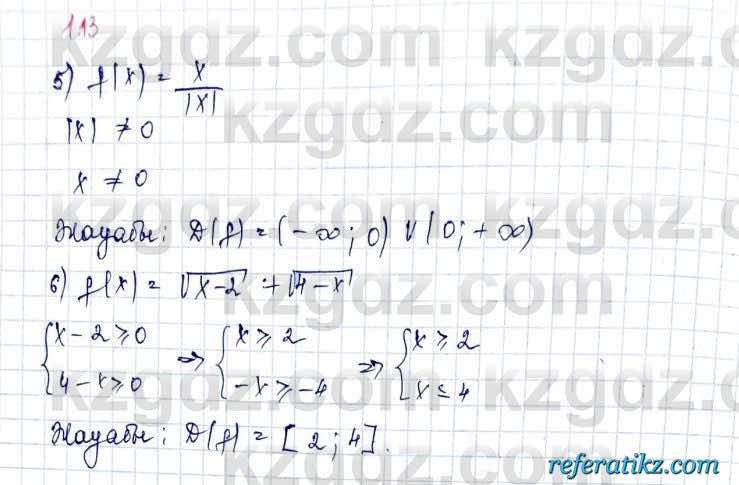 1.13
kzgdz.com kzgdz.com
5) f(x) = x/|x|
|x| ≠ 0
x ≠ 0
Жауабы: D(f) = (-∞; 0) ∪ (0; +∞)
6) f(x) = √x-2 + √4-x
{x-2 ≥ 0 ⇒ {x ≥ 2 ⇒ {x ≥ 2
4-x ≥ 0 -x ≥ -4 x ≤ 4
Жауабы: D(f) = [2; 4].
referatikz.com